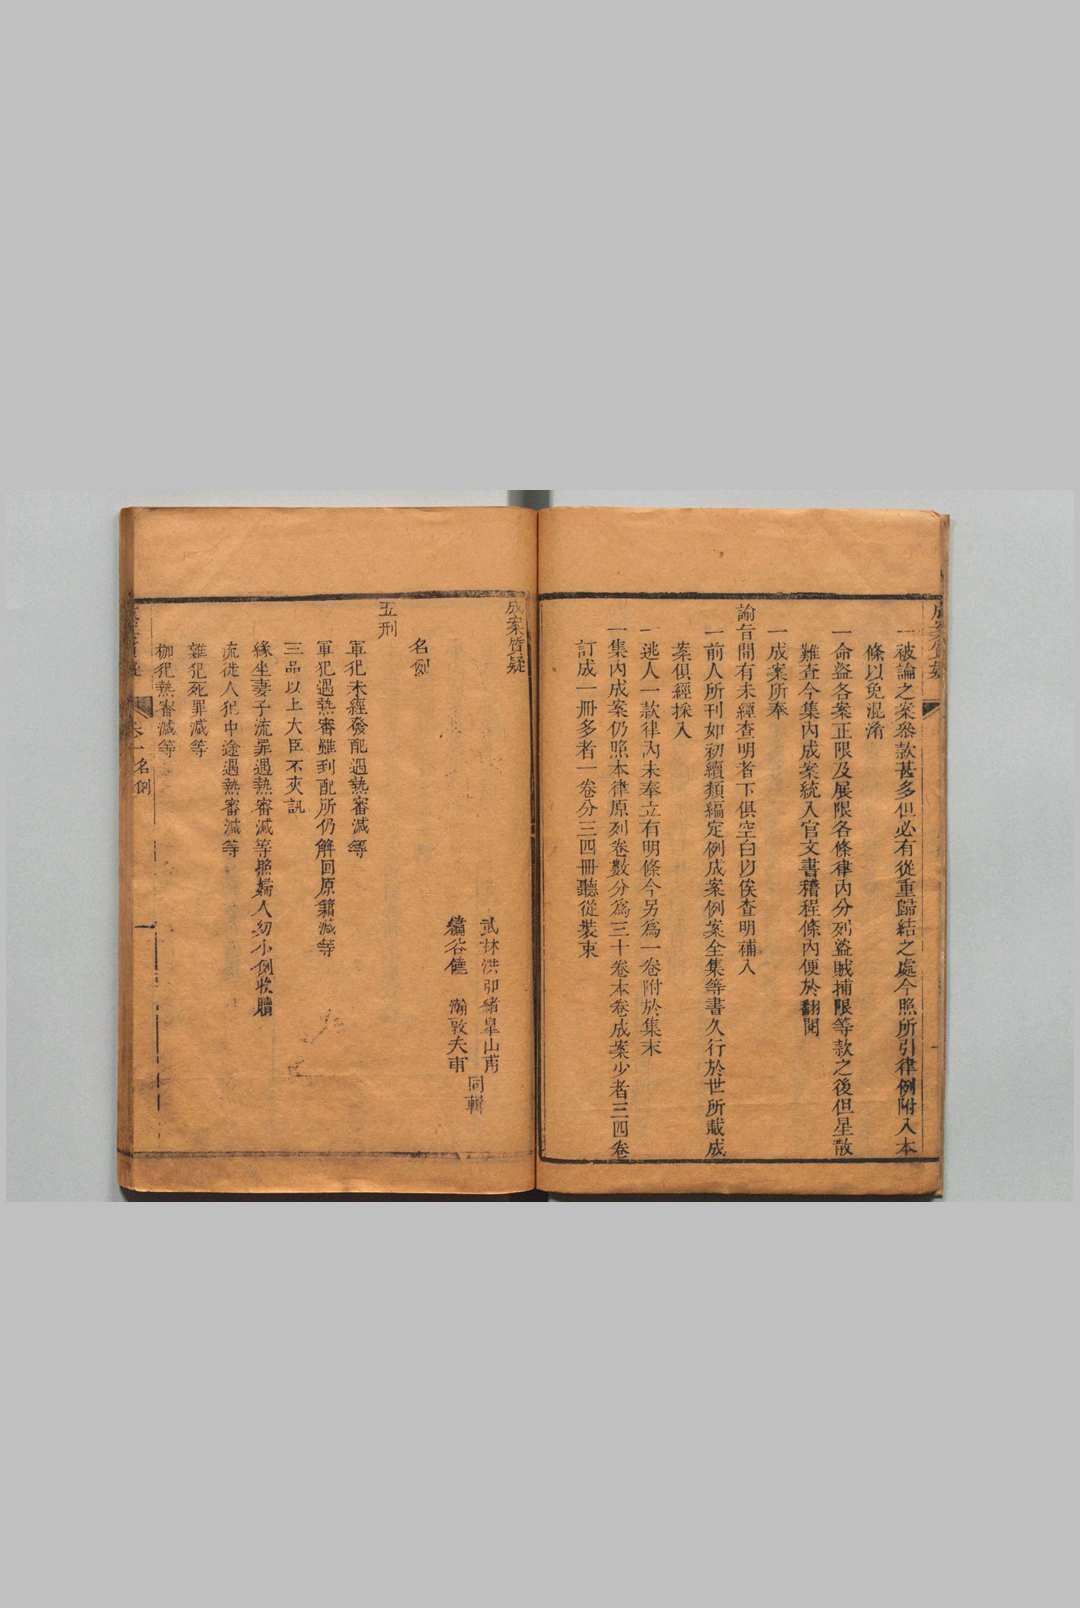 成案質疑
一被論之案叅款甚多但必有從重歸結之處今照所引律例附入本
條以免混淆
一命盜各案正限及展限各條律內分列盜賊捕限等款之後但星散
難查今集內成案統入官文書稽程條內便於翻閱
一成案所奉
諭旨間有未經查明者下俱空白以俟查明補入
一前人所刊如初續類編定例成案例案全集等書久行於世所載成
案俱經採入
一逃人一款律內未奉立有明條今另爲一卷附於集末
一集內成案仍照本律原列卷數分爲三十卷本卷成案少者三四卷
訂成一冊多者一卷分三四冊聽從裝束
成案質疑
武林洪卬緒皐山甫
繡谷 瀚敦夫甫
同輯
名例
五刑
軍犯未經發配遇熱審減等
軍犯遇熱審雖到配所仍解回原籍減等
三品以上大臣不夾訊
緣坐妻子流罪遇熱審減等照婦人幼小例收贖
流徒人犯中途遇熱審減等
雜犯死罪減等
枷犯熱審減等
卷一名例
一